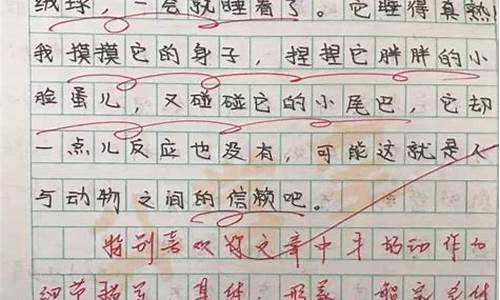 绒球，一会就睡着了。它睡得真熟
我摸摸它的身子，捏捏它胖胖的小
脸蛋儿，又碰碰它的小尾巴，它却
一点儿反应也没有，可能这就是人
与动物之间的信赖吧。
特别喜欢你文章中手的动作的
细节描写，具体，形象